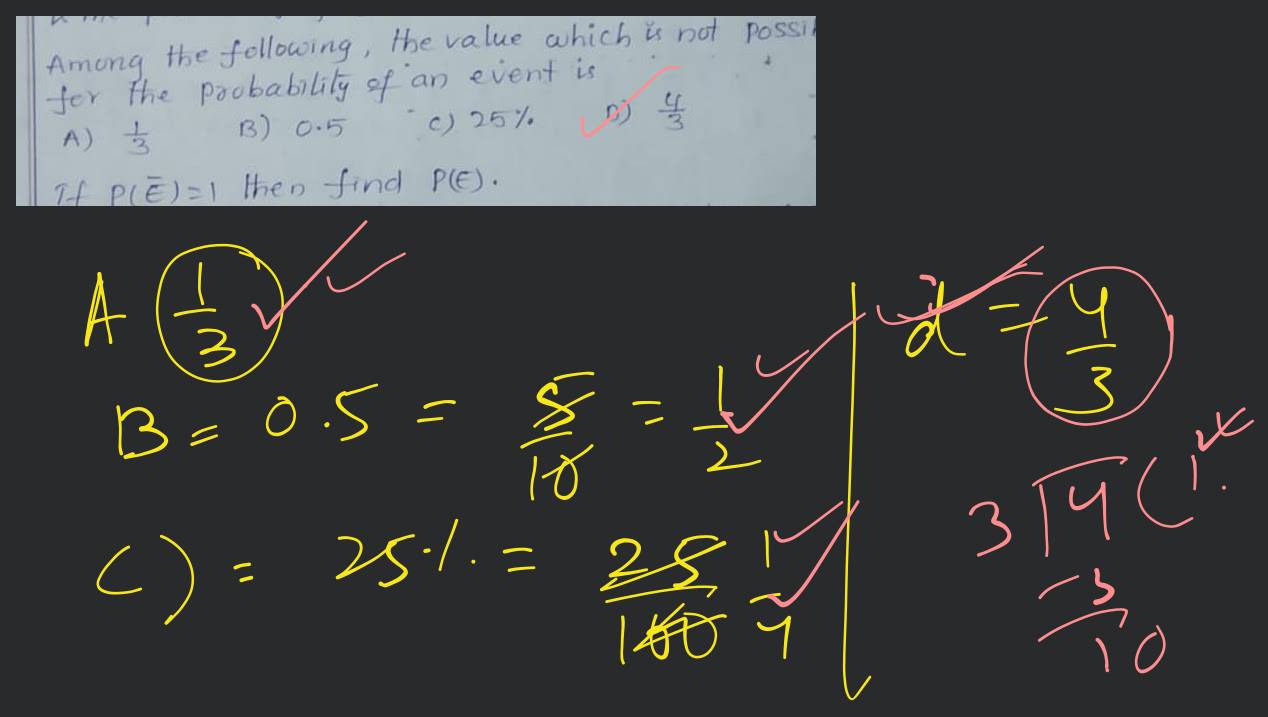 Among the following, the value which is not possi
for the probability of an event is
A) 1/3 B) 0.5 C) 25% D) 4/3
If P(Ē)=1 then find P(E).
A 1/3
B = 0.5 = 5/10 = 1/2
C) = 25% = 25/100 1/4
d = 4/3
3 4 ( 1.
-3
10